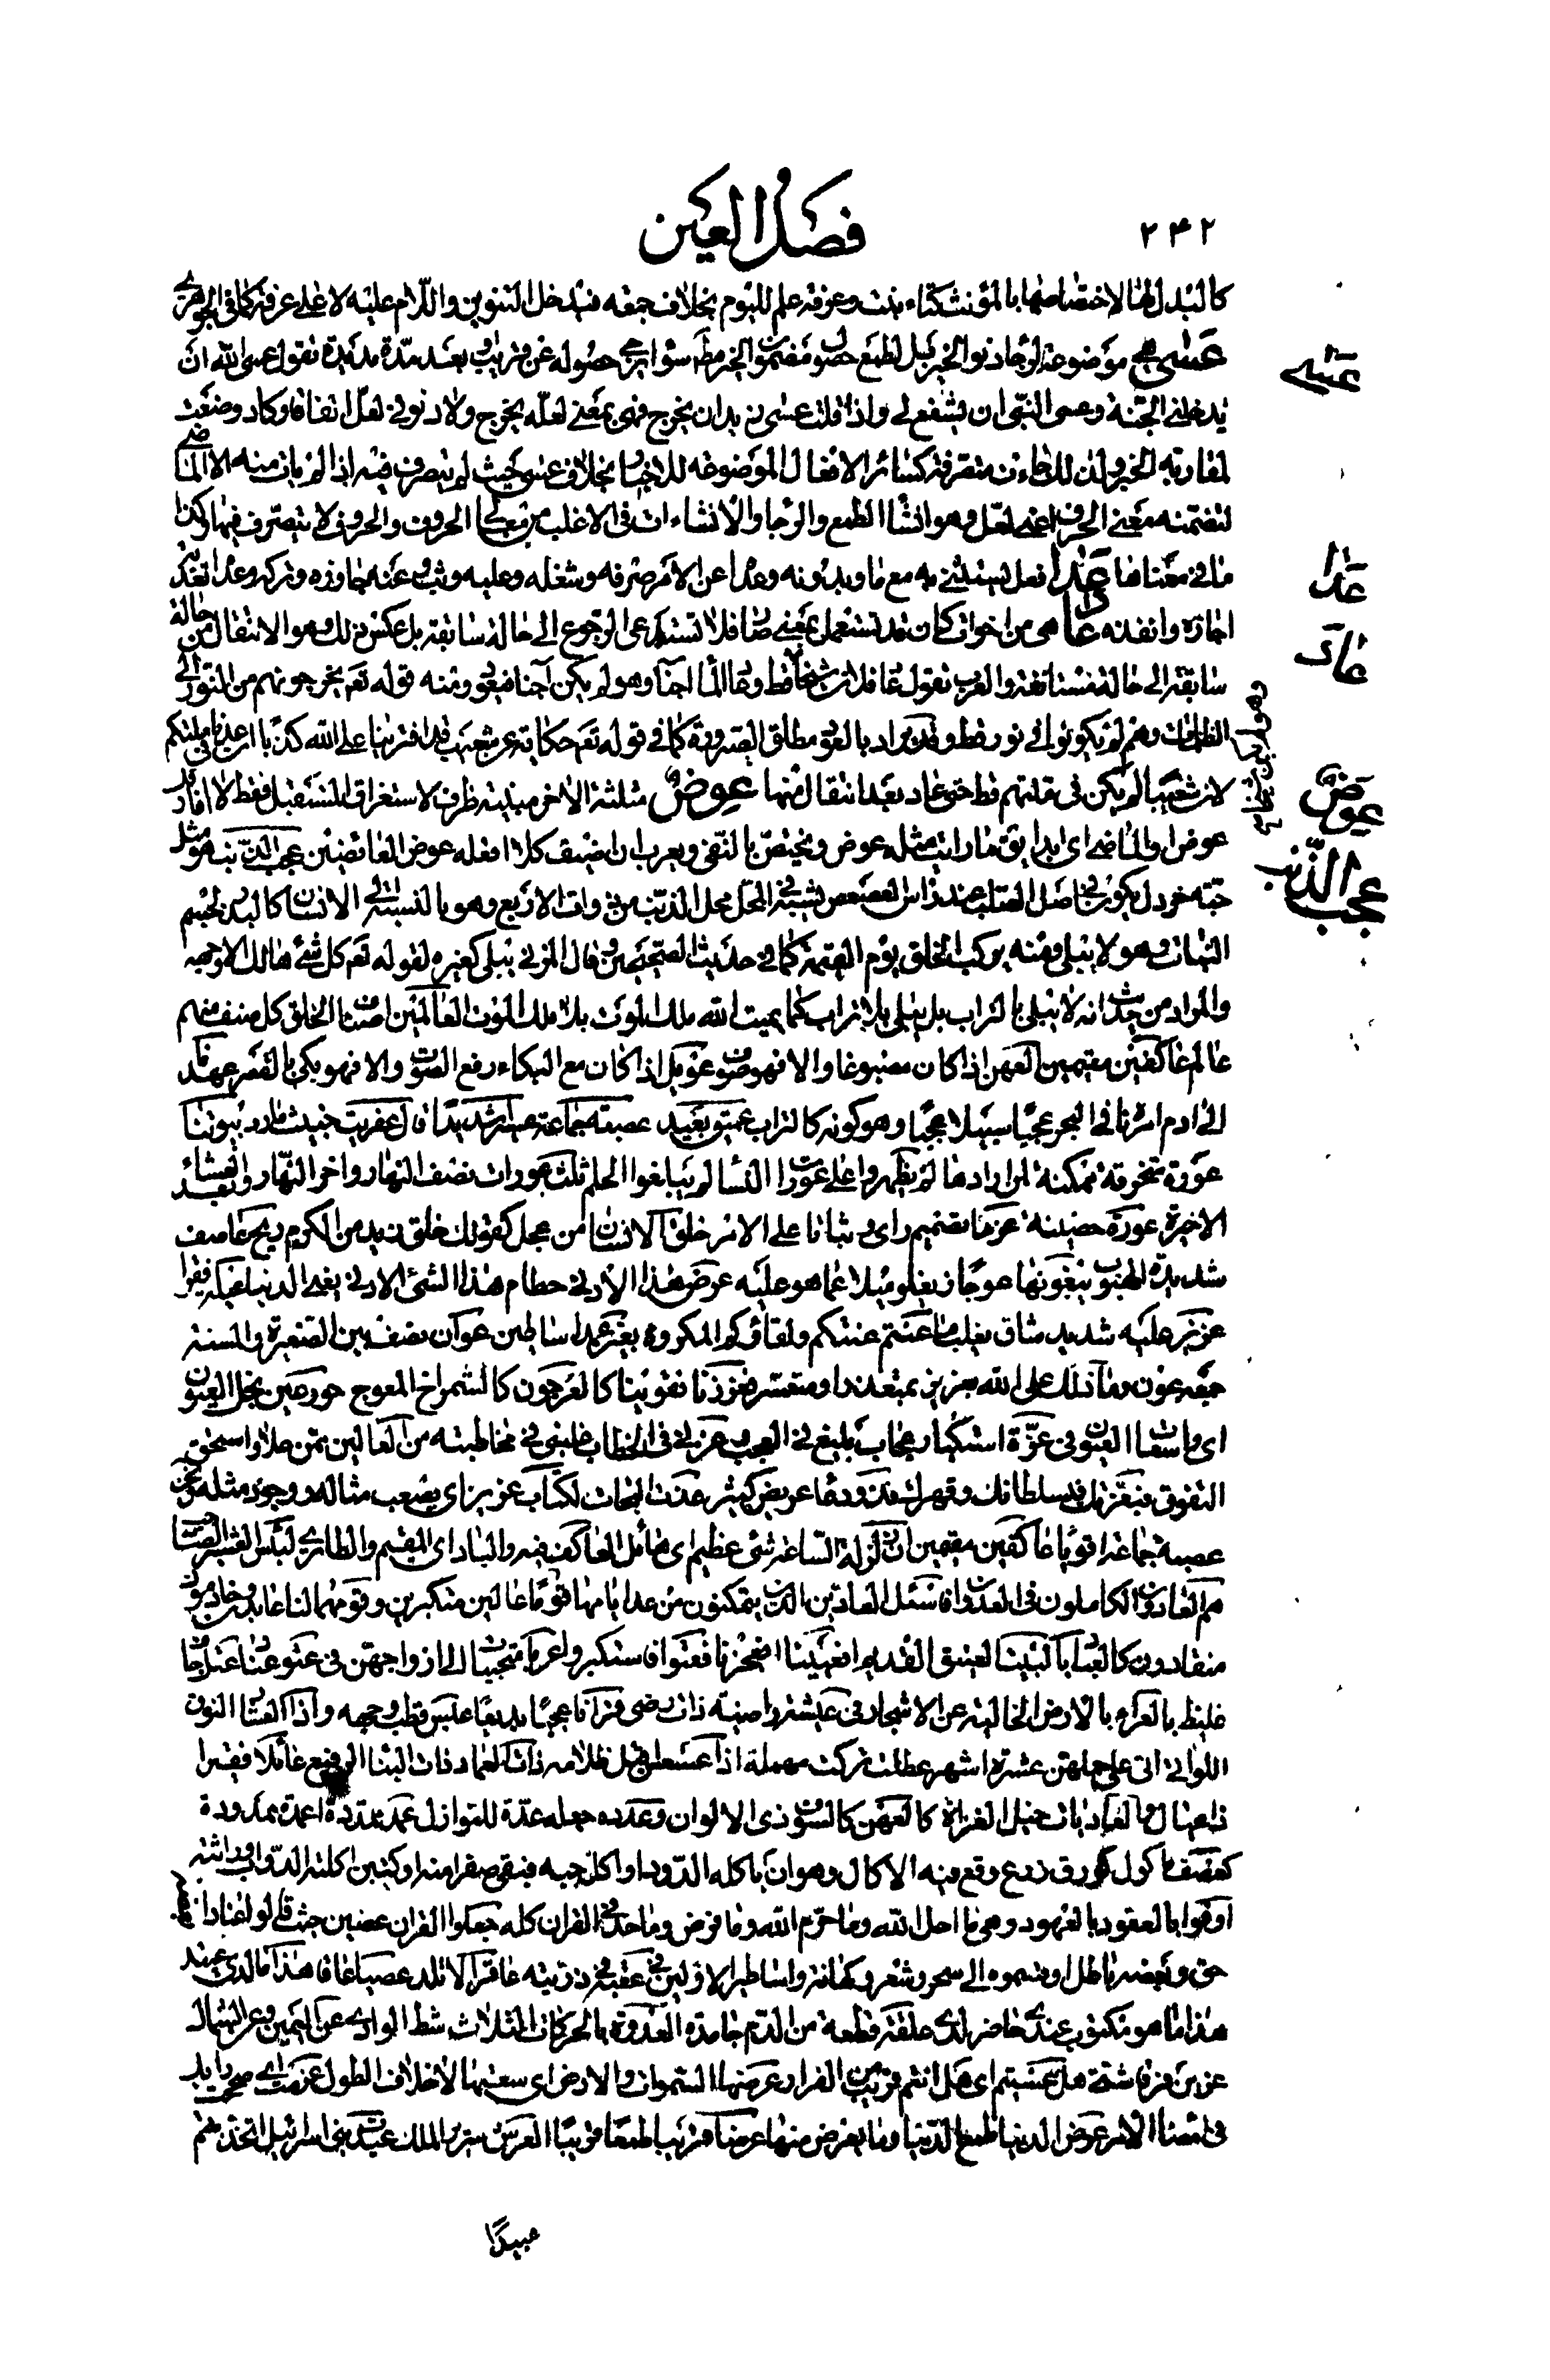 ۲۴۲
فصل العين
كالبدل لها لاختصاصها بالمؤنث كتاء بنت وعرفة علم لليوم بخلاف جمعه فتدخل التنوين واللام عليه لا على عرفة كما في الجوهري
عسى موضوعة لرجاء دنو الخبر بل لطمع حصول مضمون الخبر مطلقا سواء يرجى حصوله عن قريب او بعد مدة مديدة تقول عسى الله ان
يدخلني الجنة وعسى النبي ان يشفع لي واذا قلت عسى زيد ان يخرج فهي بمعنى لعله يخرج ولا دنو في لعل اتفاقا وكاد وضعت
لمقاربة الخبر ولذلك جاءت متصرفة كسائر الافعال الموضوعة للاخبار بخلاف عسى حيث لم يتصرف فيه اذا لم يات منه الا الماضي
لتضمنه معنى الحرف اعني لعل وهو انشاء الطمع والرجاء والانشاءات في الاغلب من معاني الحروف والحروف لا يتصرف فيها وكذا
ما في معناها عدا فعل يستثنى به مع ما وبدونه وعدا عن الامر صرفه وشغله وعليه وثب وعنه جاوزه وتركه وعداه تعدية
اجازه وانفذه عاد هي من اخوات كان قد تستعمل بمعنى صار فلا تستدعي الرجوع الى حالة سابقة بل عكس ذلك وهو الانتقال من حالة
سابقة الى حالة مستانفة والعرب تقول عاد فلان شيخا قط وعاد الماء آجنا وهو لم يكن آجنا فيعود ومنه قوله تعم يخرجونهم من النور الى
الظلمات وهم لم يكونوا في نور قط وقد يراد بالعود مطلق الصيرورة كما في قوله تعم حكاية عن شعيب قد افترينا على الله كذبا ان عدنا في ملتكم
لان شعيبا لم يكن في ملتهم قط حتى عاد بعد انتقال منها عوض مثلثة الاخر مبنية ظرف لاستغراق المستقبل فقط لا افارقك
عوض او الماضي اى ابدا يق ما رايت مثله عوض ويختص بالنفى ويعرب ان اضيف كلا افعله عوض العائضين عجب الذنب هو مثل
حبة خردل يكون في اصل الصلب عند راس العصعص يشبه في المحل محل الذنب من ذوات الاربع وهو بالنسبة الى الانسان كالبذر لجسم
النبات وهو لا يبلى ومنه يركب الخلق يوم القيمة كما في حديث الصحيحين وقال المزني يبلى كغيره لقوله تعم كل شئ هالك الا وجهه
والمراد من حديث انه لا يبلى بالتراب بل يبلى بلا تراب كما يميت الله ملك الموت بلا ملك الموت العالمين اصناف الخلق كل صنف منهم
عالم عاكفين مقيمين العهن اذا كان مصبوغا والا فهو صوف عويل اذا كان مع البكاء رفع الصوت والا فهو بكى بالقصر عهد
الى ادم امرنا في البحر عجبا سبيلا عجبا وهو كونه كالتراب عميق بعيد عصبة جماعة عصيب شديد قال عفريت خبيث مارد بيوتنا
عورة متخرقة ممكنة لمن ارادها لم يظهروا على عورات النساء لم يبلغوا الحلم ثلث عورات نصف النهار واخر النهار وبعد العشاء
الاخيرة عورة حصينة عزما تصميم راى وثباتا على الامر خلق الانسان من عجل كقولك خلق زيد من الكرم ريح عاصف
شديدة الهبوب يبغونها عوجا زيغا وميلا عما هو عليه عرض هذا الادنى حطام هذا الشئ الادنى يعني الدنيا عيلة فقرا
عزيز عليه شديد شاق يغلب ما عنتم عنتكم ولقاؤكم المكروه بغير عمد اساطين عوان نصف بين الصغيرة والمسنة
جمعه عون وما ذلك على الله بعزيز بمتعذر او متعسر فعززنا فقوينا كالعرجون كالشمراخ المعوج حور عين نجل العيون
اى واسعات العيون في عزة استكبار عجاب بليغ في العجب وعزني في الخطاب غلبني في مخاطبته من العالين ممن علا واستحق
التفوق فبعزتك فبسلطانك وقهرك فذو دعاء عريض كثير عدت لجات لكتاب عزيز اى يصعب مثاله ووجود مثله نحن
عصبة جماعة اقوياء عاكفين مقيمين ان زلزلة الساعة شئ عظيم اى هائل العاكف فيه والباد اى المقيم والطارى لبئس العشير الصاحب
هم العادون الكاملون في العدوان فاسئل العادين الذين يتمكنون من عد ايامها قوما عالين متكبرين وقومهما لنا عابدون خادمون
منقادون كالعباد بالبيت العتيق القديم افعيينا افعجزنا فعتوا فاستكبروا عربا متحببات الى ازواجهن في عتو عناد عتل جاف
غليظ بالعراء بالارض الخالية عن الاشجار في عيشة راضية ذات رضى قرآنا عجبا بديعا عبس قطب وجهه واذا العشار النوق
اللواتى اتى على حملهن عشرة اشهر عطلت تركت مهملة اذا عسعس اقبل ظلامه ذات العماد ذات البناء الرفيع عائلا فقيرا
ذا عيال والعاديات خيل الغزاة كالعهن كالصوف ذى الالوان وعدده جعله عدة للنوازل عمد ممددة اعمدة ممدودة
كعصف ماكول كورق زرع وقع فيه الاكال وهو ان ياكله الدود او اكل حبه فبقى صفرا منه او كتبن اكلته الدواب وراثته
اوفوا بالعقود بالعهود وهى ما احل الله وما حرم الله وما فرض وما حد في القران كله جعلوا القران عضين حيث قالوا عنادا بعضه
حق وبعضه باطل او قسموه الى سحر وشعر وكهانة واساطير الاولين في عقبه في ذريته عاقرا لا تلد عصيا عاقا هذا ما لدى عتيد
هذا ما هو مكتوب عندى حاضر لدى علقة قطعة من الدم جامدة العدوة بالحركات الثلاث شط الوادى عن اليمين وعن الشمال
عزين فرقا شتى هل عسيتم اى هل انتم قريب من الفرار وعرضها السموات والارض اى سعتها لا خلاف الطول عزمت اى صححت رايك
في امضاء الامر عرض الدنيا طمع الدنيا وما يعرض منها عرضا قريبا طمعا قريبا العرش سرير الملك عبدت بني اسرائيل اتخذتهم
عبيدا
عسى
عدا
عاد
عوض
عجب الذنب